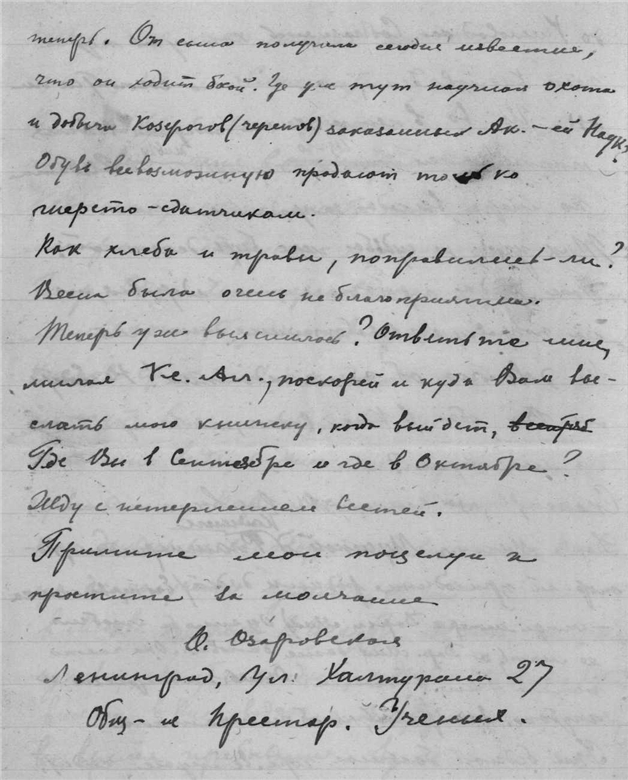 теперь. От сына получила сегодня известие,
что он ходит бкой. Где уж тут научная охота
и добыча Козерогов (черепов) заказанных Ак.-ей Наук?
Обувь всевозможную продают только
шерсто-сдатчикам.
Как хлеба и травы, поправились-ли?
Весна была очень неблагоприятна.
Теперь уж выяснилось? Ответьте мне,
милая Кс. Ал., поскорей и куда Вам вы-
слать мою книжку, когда выйдет,
Где Вы в Сентябре и где в Октябре?
Жду с нетерпением вестей.
Примите мои поцелуи и
простите за молчание
О. Озаровская
Ленинград, Ул. Халтурина 27
Общ-ие Престар. Ученых.